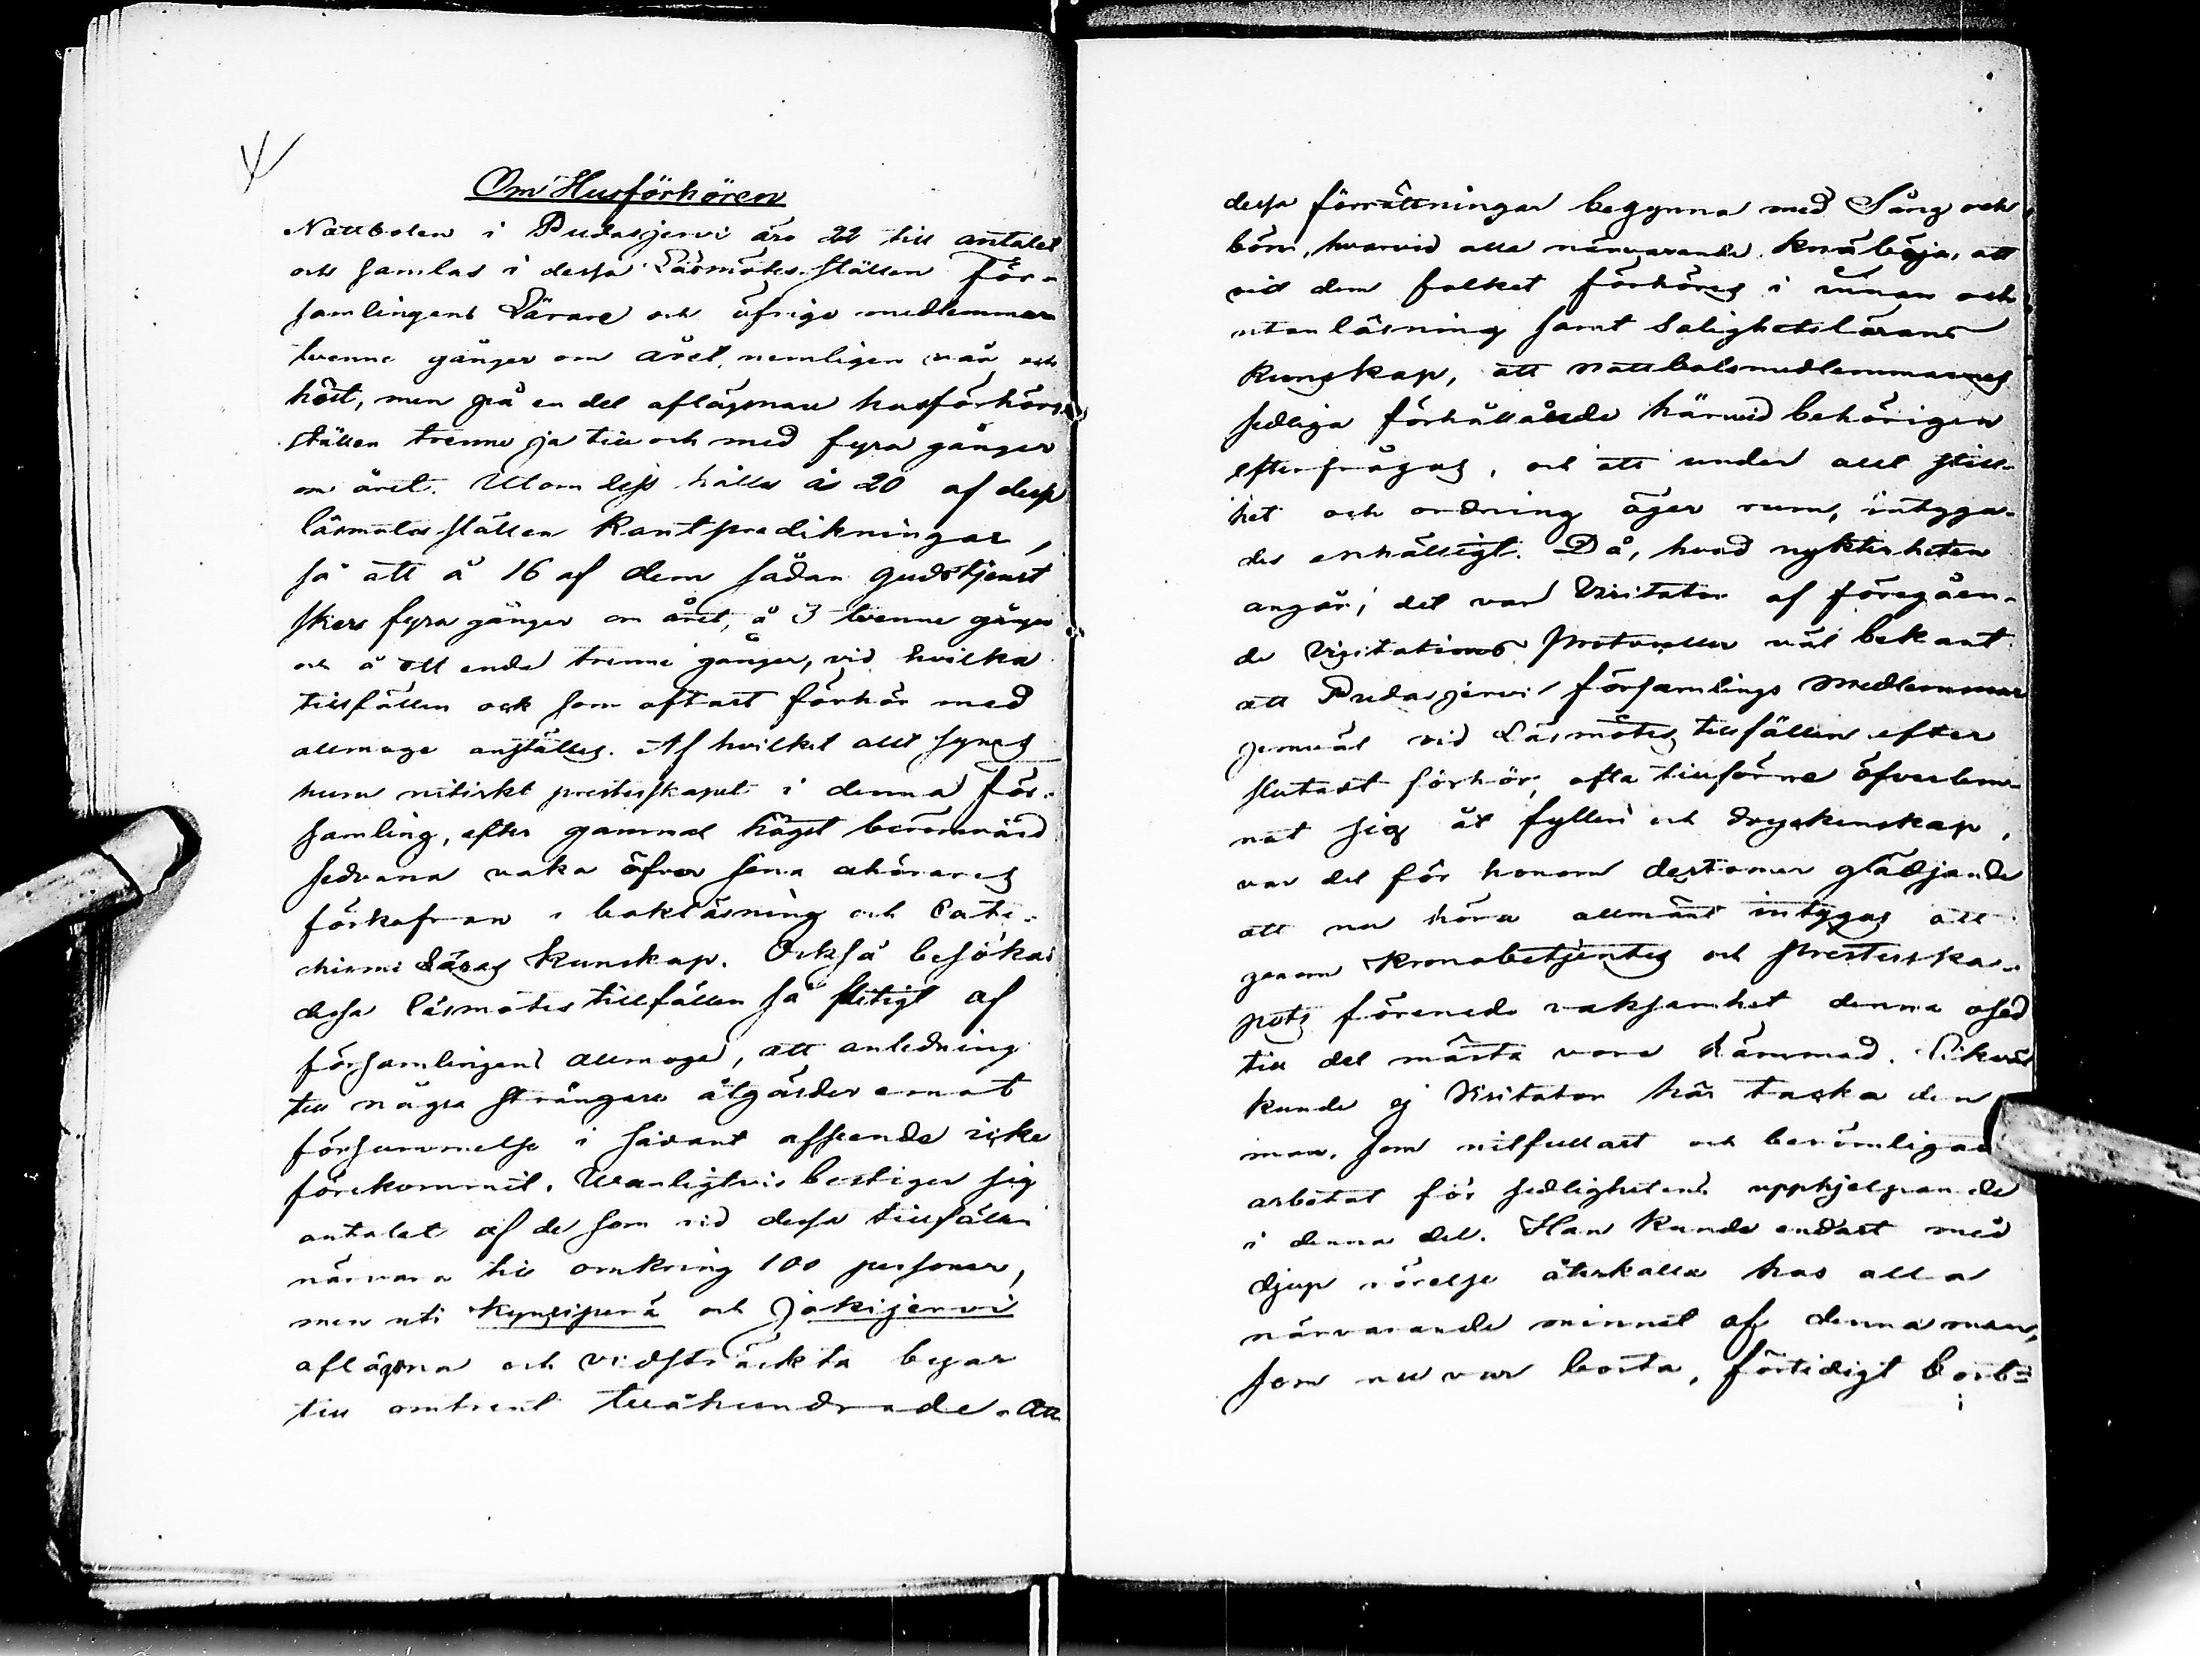 Om Husförhören
Nattbolen i Pudasjervi äro 22 till antalet
och samlas i dessa Läsmötes ställen För-
samlingens Lärare och öfrige medlemmar
tvenne gånger om året, nemligen vår och
höst, men på en del aflägsnare husförhörs
ställen trenne ja till och med fyra gånger
om året. Utom dess hålles å 20 af dessa
läsmötes ställen Kantpredikningar,
så att å 16 af dem sådan gudstjenst
sker fyra gånger om året, å 3 tvenne gånger
och å ett enda trenne gånger, vid hvilka
tillfällen ock som oftast förhör med
allmoge anställes. Af hvilket allt synes
huru nitiskt presterskapet i denna för-
samling, efter gammal högst berömvärd
sedvana vaka öfver sina åhörares
förkofran i bokläsning och Cate-
chismi Läras Kunskap. Också besökas
dessa läsmötes tillfällen så flitigt af
församlingens allmoge, att anledning
till några strängare åtgärder emot
försummelse i sådant afseende icke
förekommit. Wanligtvis bestiger sig
antalet af de som vid dessa tillfällen
närvara till omkring 100 personer,
men uti Kynsiperä och Jokijervi
aflägsna och vidsträckta byar
till omtrent tvåhundrade. Att
dessa förrättningar begynna med Sång och
bön, hvarvid alla närvarande knäböja, att
vid dem folket förhöres i innan och
utan läsning samt Salighetslärans
Kunskap, att nattbolsmedlemmarnes
sedliga förhållande härvid behörigen
efterfrågas, och att under allt still-
het och ordning äger rum, intyga-
des enhälligt. Då, hvad nykterheten
angår, det var Visitator af föregåen-
de Visitations Protocoller väl bekant
att Pudasjervi församlings medlemmar
jemväl vid Läsmötes tillfällen efter
slutadt förhör, ofta tillförne öfverlem-
nat sig åt fylleri och dryckenskap,
var det för honom destomer glädjande
att nu höra allmänt intygas att
genom Kronobetjentes och Presterska-
pets förenade vaksamhet denna osed
till det mästa vore dämmad. Likväl
kunde ej Visitator här tacka den
man, som nitfullast och berömligast
arbetat för sedlighetens upphjelpande
i denna del. Han Kunde endast med
djup rörelse återkalla hos alla
närvarande minnet af denna man,
som nu var borta, förtidigt bort-